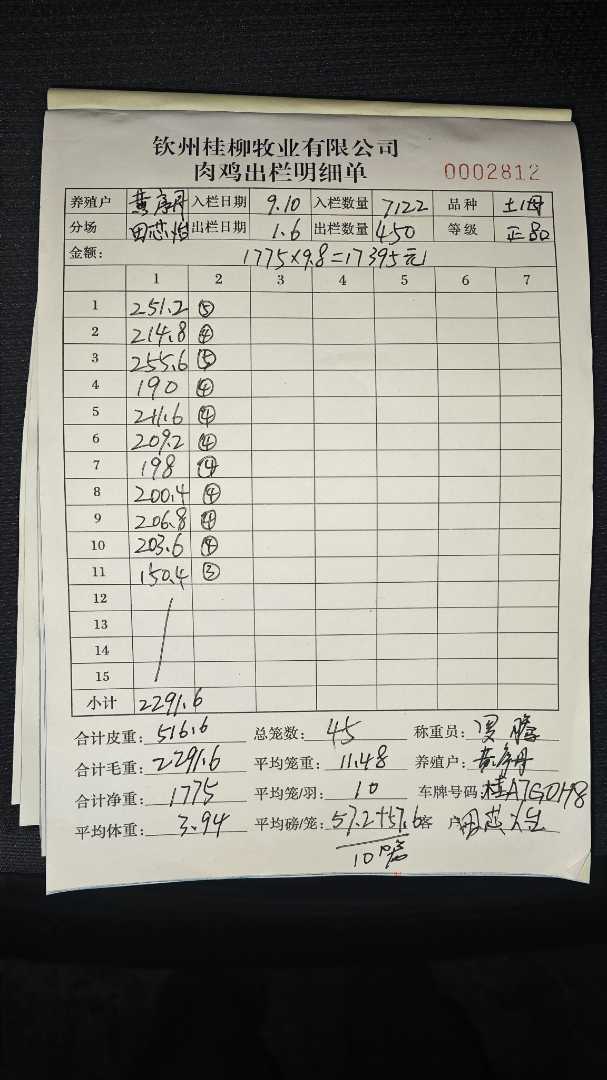 钦州桂柳牧业有限公司
肉鸡出栏明细单 0002812
养殖户 黄序丹 入栏日期 9.10 入栏数量 7122 品种 土1母
分场 田芯怡 出栏日期 1.6 出栏数量 450 等级 正品
金额: 1775×9.8=17395元
1 2 3 4 5 6 7
1 251.2 ⑤
2 214.8 ④
3 255.6 ⑤
4 190 ④
5 211.6 ④
6 209.2 ④
7 198 ④
8 200.4 ④
9 206.8 ④
10 203.6 ④
11 150.4 ③
12
13
14
15
小计 2291.6
合计皮重: 516.6 总笼数: 45 称重员:
合计毛重: 2291.6 平均笼重: 11.48 养殖户: 黄序丹
合计净重: 1775 平均笼/羽: 10 车牌号码: 桂A7G0H8
平均体重: 3.94 平均磅/笼: 57.2+57.6 客户 田芯
10笼